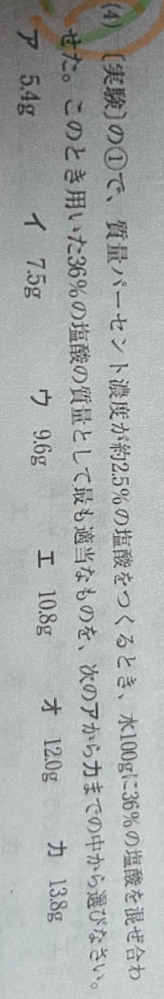 (4) 〔実験〕の①で、質量パーセント濃度が約2.5%の塩酸をつくるとき、水100gに36%の塩酸を混ぜ合わ
せた。このとき用いた36%の塩酸の質量として最も適当なものを、次のアからカまでの中から選びなさい。
ア 5.4g イ 7.5g ウ 9.6g エ 10.8g オ 12.0g カ 13.8g